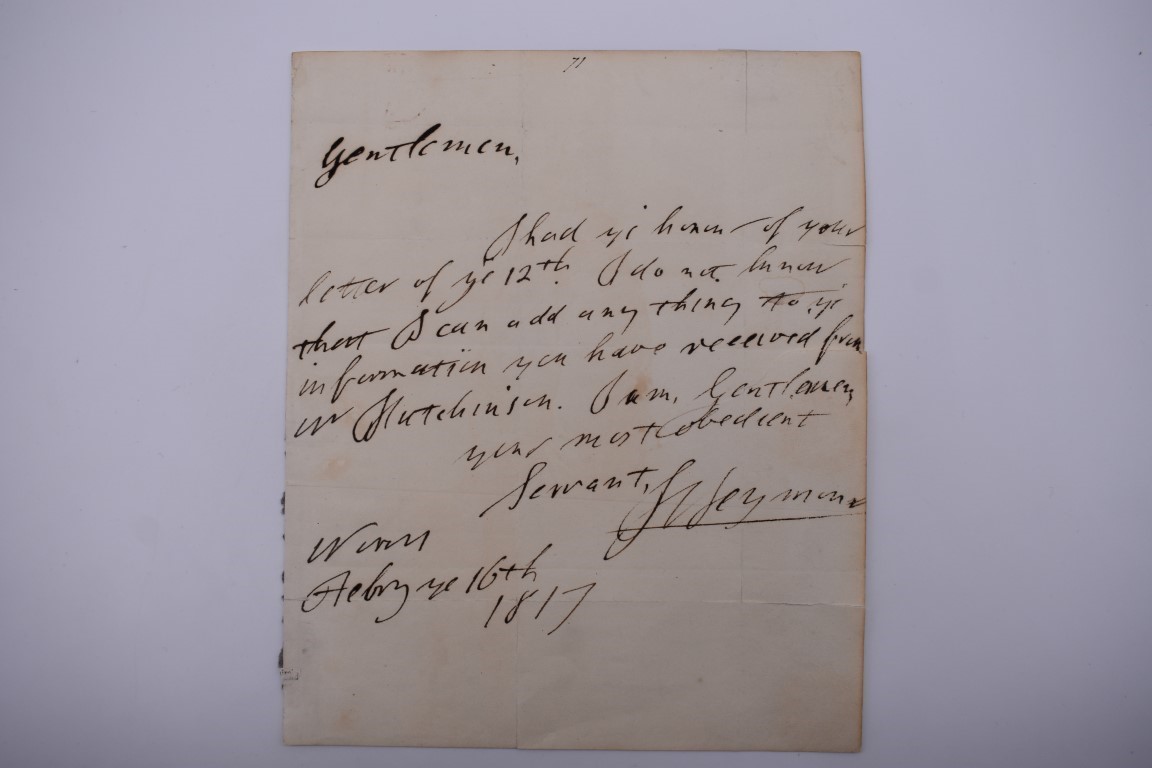 71
Gentlemen,
I had ye honor of your
letter of ye 12th. I do not know
that I can add any thing to ye
information you have received from
Mr Hutchinson. I am, Gentlemen,
your most obedient
Servant,
Seymour
Febry ye 16th
1817